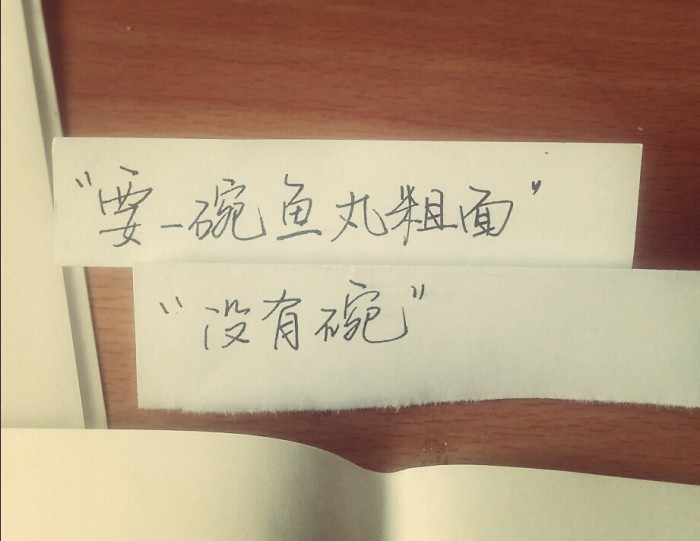 “要一碗鱼丸粗面”
“没有碗”